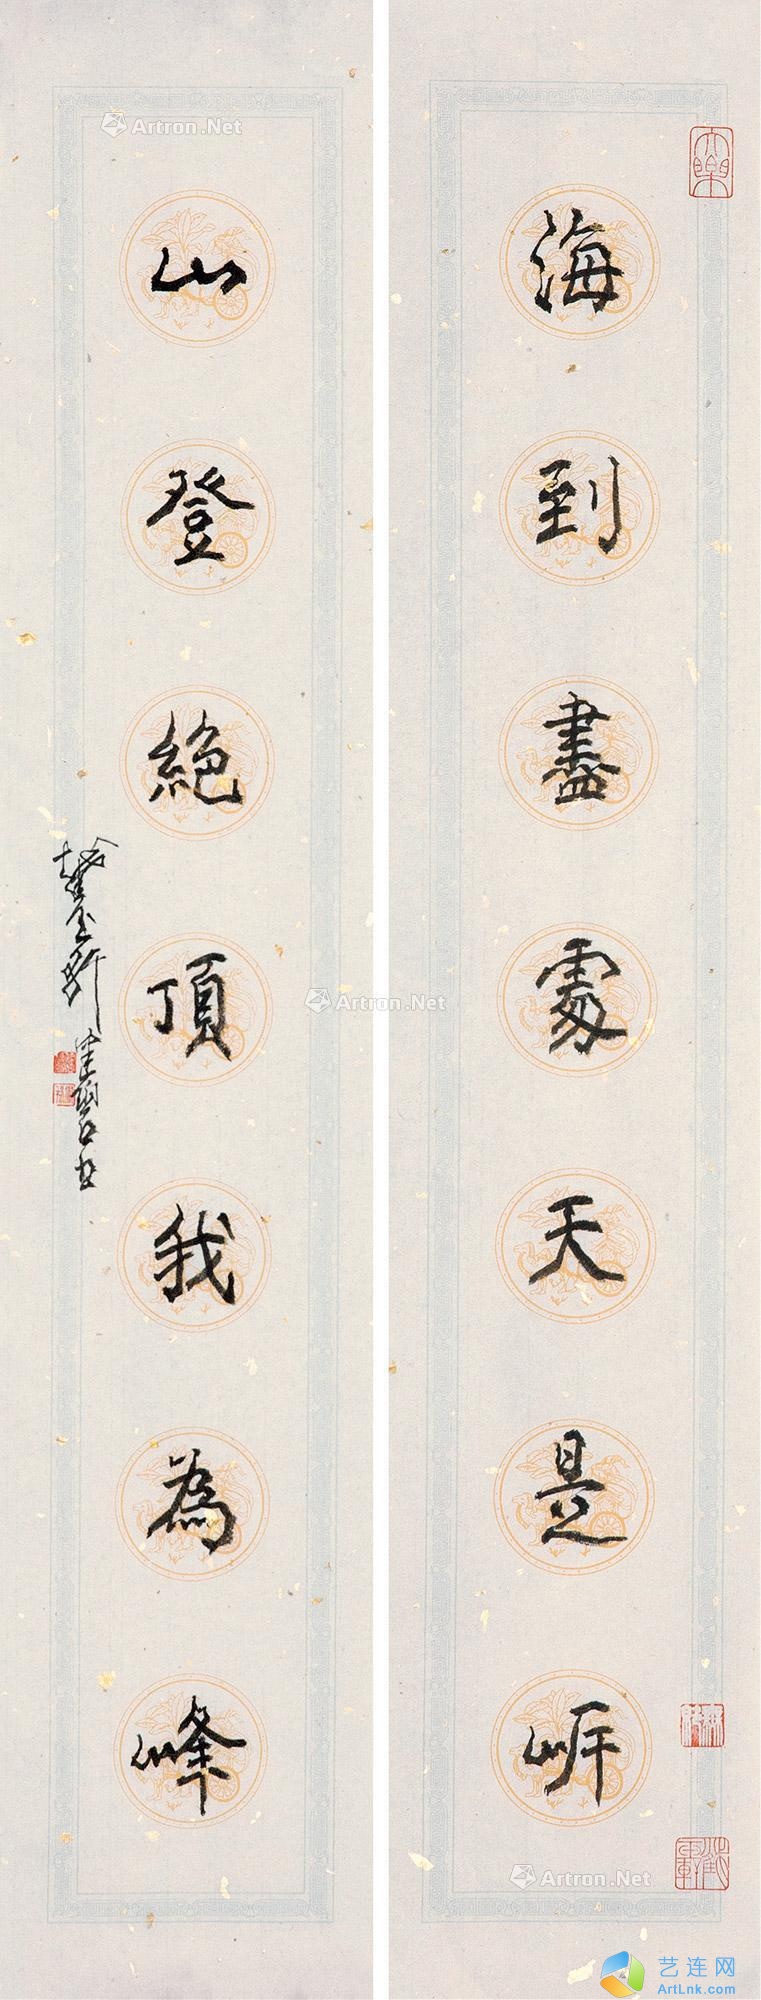 海到盡處天是岸
山登絕頂我為峰
Artron.Net
Artron.Net
Artron.Net
艺连网
ArtLnk.com